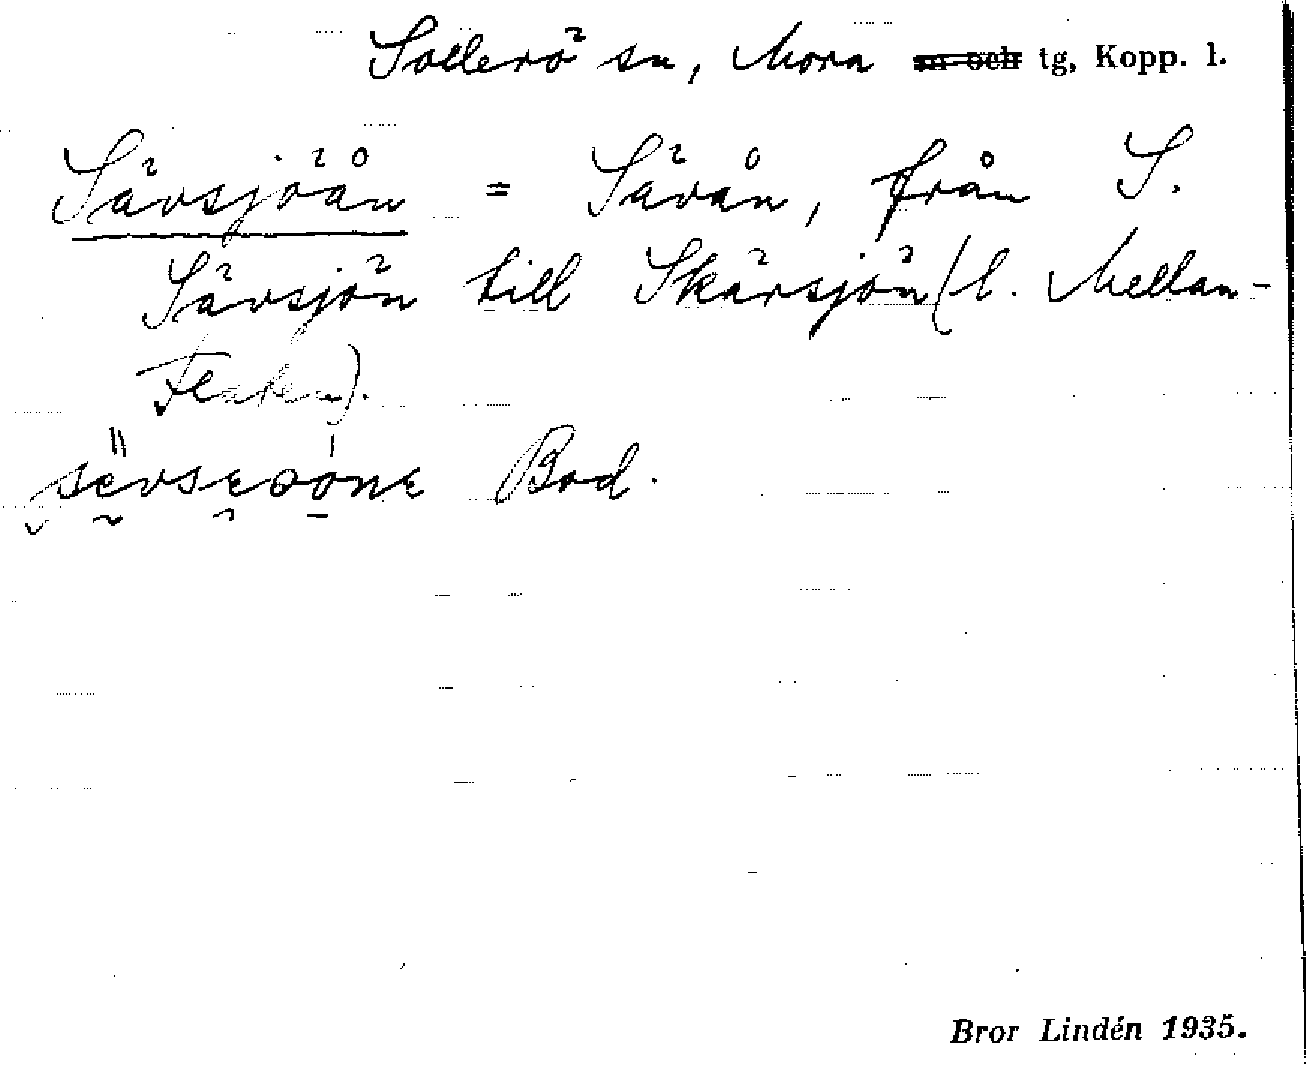 Sollerö sn, Mora sn och tg, Kopp. l.
Sävsjöån = Sävån, från S.
Sävsjön till Skärsjön (l. Mellan-
Flaten).
Bod.
Bror Lindén 1935.